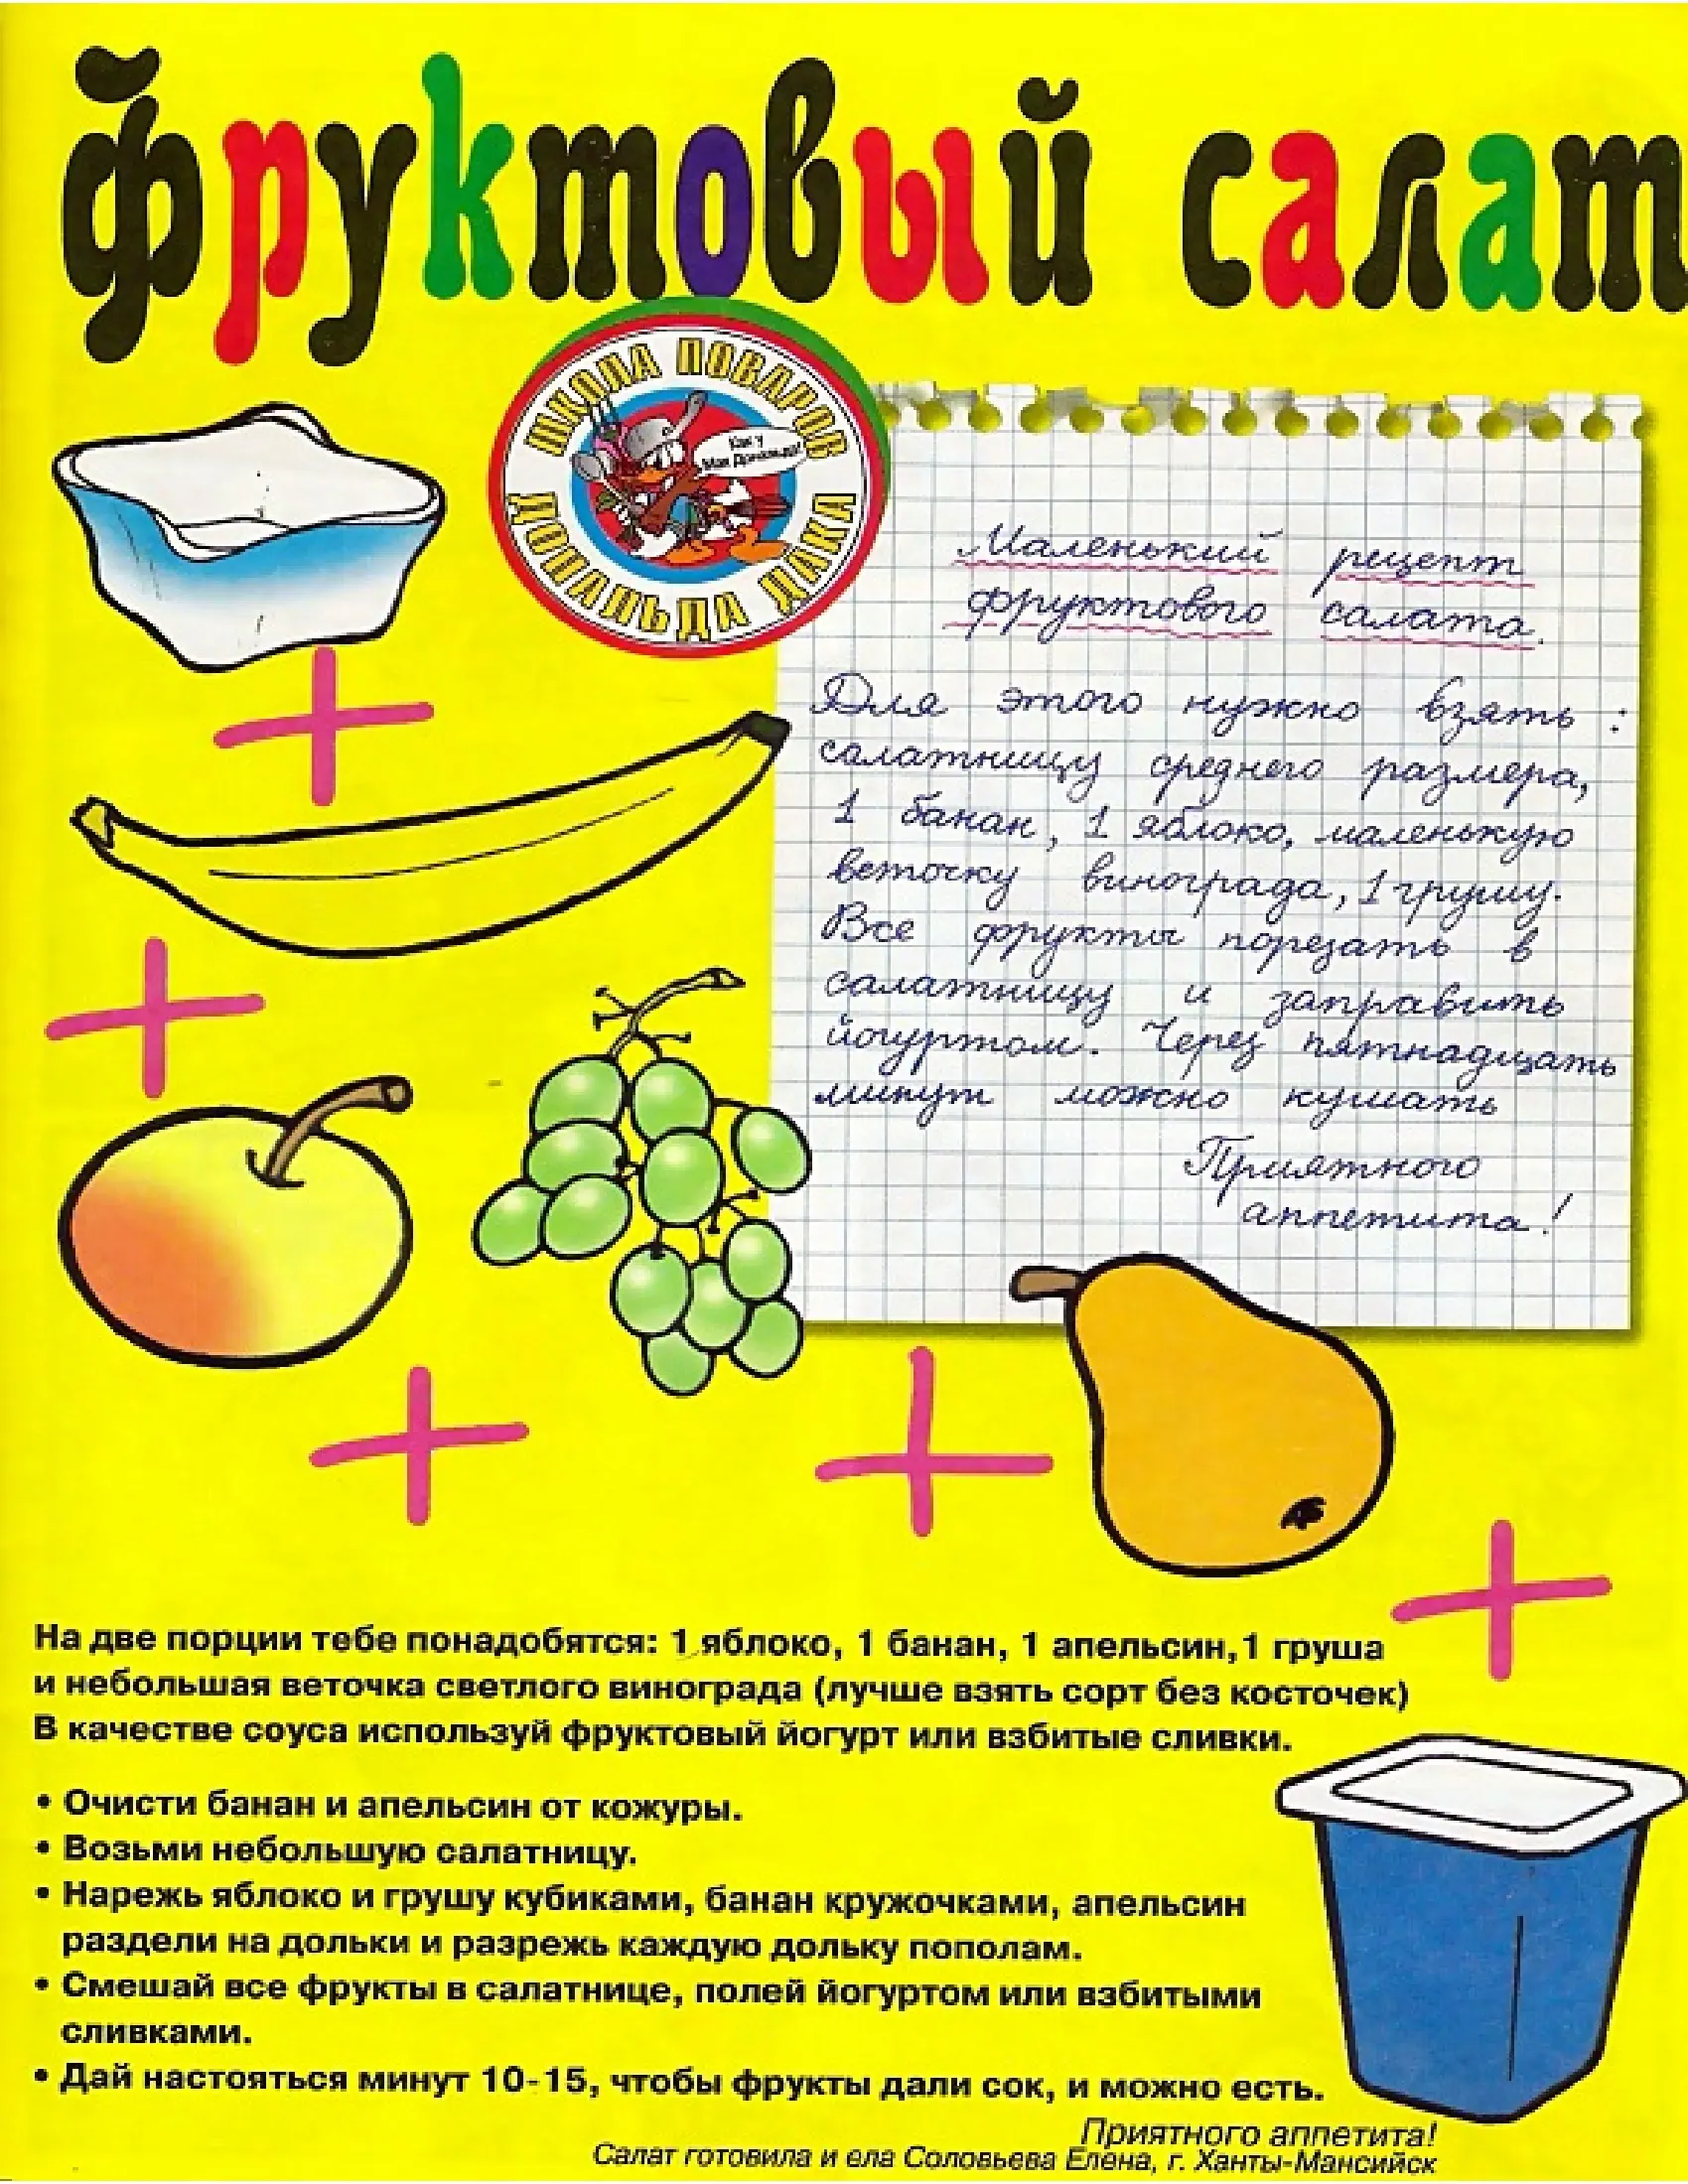 фруктовый салат
ШКОЛА ПОВАРОВ
ДОНАЛЬДА ДАКА
Как у
Мак Дональда!
Маленький рецепт
фруктового салата.
Для этого нужно взять:
салатницу среднего размера,
1 банан, 1 яблоко, маленькую
веточку винограда, 1 грушу.
Все фрукты порезать в
салатницу и заправить
йогуртом. Через пятнадцать
минут можно кушать
Приятного
аппетита!
На две порции тебе понадобятся: 1 яблоко, 1 банан, 1 апельсин, 1 груша
и небольшая веточка светлого винограда (лучше взять сорт без косточек)
В качестве соуса используй фруктовый йогурт или взбитые сливки.
• Очисти банан и апельсин от кожуры.
• Возьми небольшую салатницу.
• Нарежь яблоко и грушу кубиками, банан кружочками, апельсин
раздели на дольки и разрежь каждую дольку пополам.
• Смешай все фрукты в салатнице, полей йогуртом или взбитыми
сливками.
• Дай настояться минут 10-15, чтобы фрукты дали сок, и можно есть.
Приятного аппетита!
Салат готовила и ела Соловьева Елена, г. Ханты-Мансийск